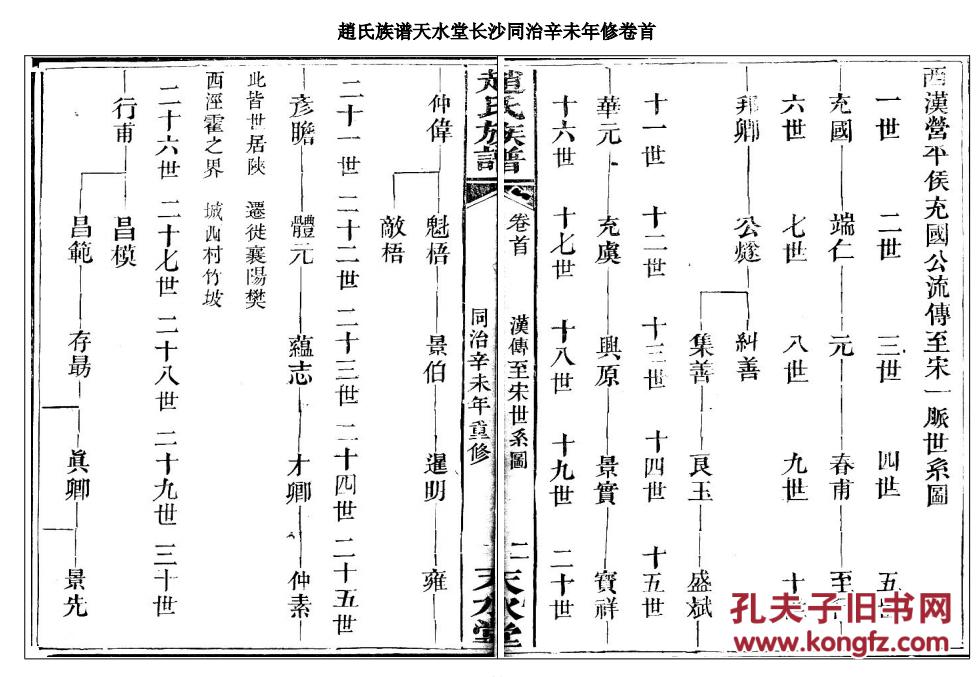 趙氏族谱天水堂长沙同治辛未年修卷首
西漢營平侯充國公流傳至宋一脈世系圖
一世 二世 三世 四世 五
充國 端仁 元 春甫 至
六世 七世 八世 九世 十
邦卿 公燧 糾善
集善 艮玉 盛斌
十一世 十二世 十三世 十四世 十五世
華元 充虞 興原 景實 寶祥
十六世 十七世 十八世 十九世 二十世
趙氏族譜 卷首 漢傳至宋世系圖 二
同治辛未年重修 天水堂
仲偉 魁梧 景伯 暹明 雍
敵梧
二十一世 二十二世 二十三世 二十四世 二十五世
彥瞻 體元 蘊志 才卿 仲素
此皆世居陝 遷徙襄陽樊
西涇霍之界 城西村竹坡
二十六世 二十七世 二十八世 二十九世 三十世
行甫 昌模
昌範 存勗 眞卿 景先
孔夫子旧书网
www.kongfz.com